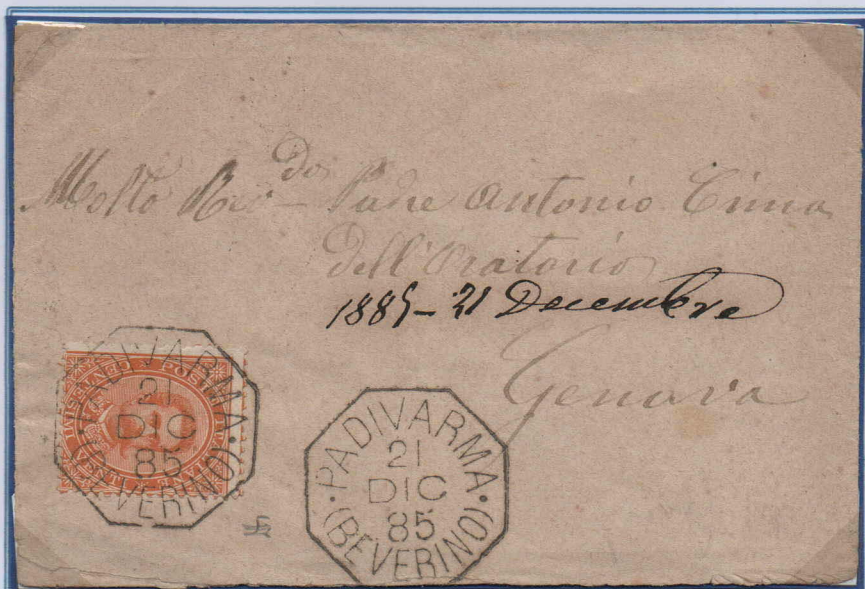 Molto Rev.do Padre Antonio Cima
dell'Oratorio
1885 - 21 Decembre
Genova
PADIVARMA
21
DIC
85
(BEVERINO)
PADIVARMA
21
DIC
85
(BEVERINO)